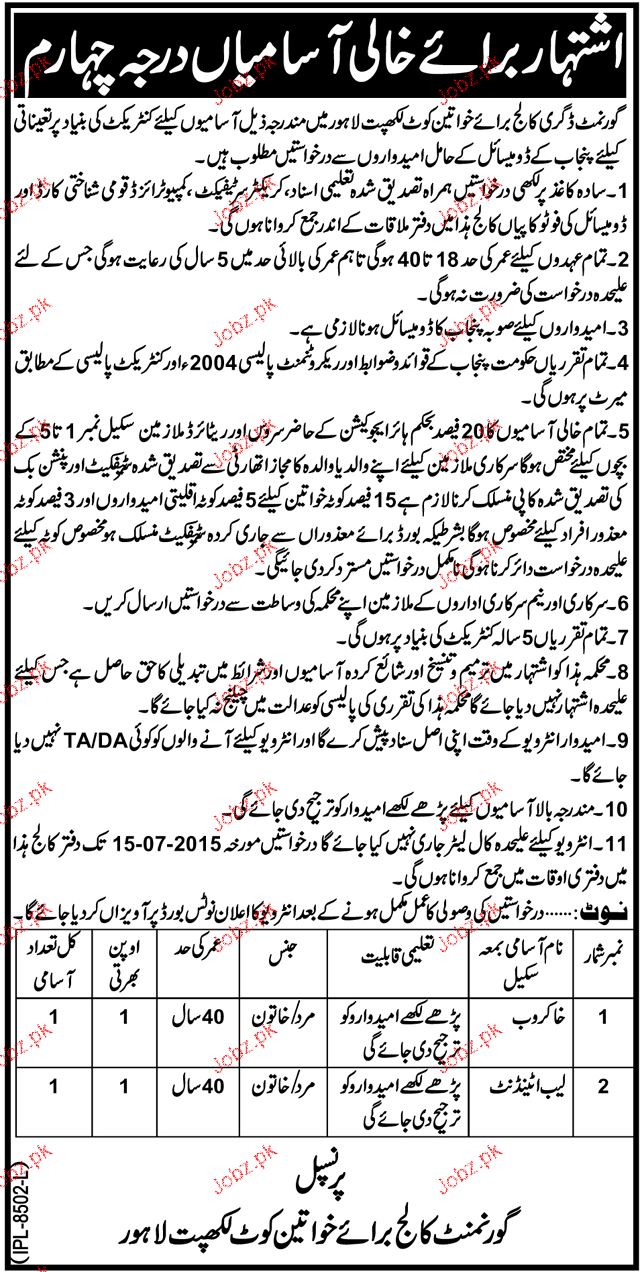 اشتہار برائے خالی آسامیاں درجہ چہارم
گورنمنٹ ڈگری کالج برائے خواتین کوٹ لکھپت لاہور میں مندرجہ ذیل آسامیوں کیلئے کنٹریکٹ کی بنیاد پر تعیناتی
کیلئے پنجاب کے ڈومیسائل کے حامل امیدواروں سے درخواستیں مطلوب ہیں۔
1۔ سادہ کاغذ پر لکھی درخواستیں ہمراہ تصدیق شدہ تعلیمی اسناد، کریکٹر سرٹیفکیٹ، کمپیوٹرائزڈ قومی شناختی کارڈ اور
ڈومیسائل کی فوٹو کاپیاں کالج ہذا میں دفتر ملاقات کے اندر جمع کروانا ہوں گی۔
2۔ تمام عہدوں کیلئے عمر کی حد 18 تا 40 ہوگی تاہم عمر کی بالائی حد میں 5 سال کی رعایت ہوگی جس کے لئے
علیحدہ درخواست کی ضرورت نہ ہوگی۔
3۔ امیدواروں کیلئے صوبہ پنجاب کا ڈومیسائل ہونا لازمی ہے۔
4۔ تمام تقرریاں حکومت پنجاب کے قوائد و ضوابط اور ریکروٹمنٹ پالیسی 2004ء اور کنٹریکٹ پالیسی کے مطابق
میرٹ پر ہوں گی۔
5۔ تمام خالی آسامیوں کا 20 فیصد بحکم ہائر ایجوکیشن کے حاضر سروس اور ریٹائرڈ ملازمین سکیل نمبر 1 تا 5 کے
بچوں کیلئے مختص ہوگا سرکاری ملازمین کیلئے اپنے والد یا والدہ کا مجاز اتھارٹی سے تصدیق شدہ سرٹیفکیٹ اور پنشن بک
کی تصدیق شدہ کاپی منسلک کرنا لازم ہے 15 فیصد کوٹہ خواتین کیلئے 5 فیصد کوٹہ اقلیتی امیدواروں اور 3 فیصد کوٹہ
معذور افراد کیلئے مخصوص ہوگا بشرطیکہ بورڈ برائے معذوراں سے جاری کردہ سرٹیفکیٹ منسلک ہو مخصوص کوٹہ کیلئے
علیحدہ درخواست دائر کرنا ہوگی نامکمل درخواستیں مسترد کردی جائیگی۔
6۔ سرکاری اور نیم سرکاری اداروں کے ملازمین اپنے محکمہ کی وساطت سے درخواستیں ارسال کریں۔
7۔ تمام تقرریاں 5 سالہ کنٹریکٹ کی بنیاد پر ہوں گی۔
8۔ محکمہ ہذا کو اشتہار میں ترمیم و تنسیخ اور شائع کردہ آسامیوں اور شرائط میں تبدیلی کا حق حاصل ہے جس کیلئے
علیحدہ اشتہار نہیں دیا جائے گا محکمہ ہذا کی تقرری کی پالیسی کو عدالت میں چیلنج نہ کیا جائے گا۔
9۔ امیدوار انٹرویو کے وقت اپنی اصل سناد پیش کرے گا اور انٹرویو کیلئے آنے والوں کو کوئی TA/DA نہیں دیا
جائے گا۔
10۔ مندرجہ بالا آسامیوں کیلئے پڑھے لکھے امیدوار کو ترجیح دی جائے گی۔
11۔ انٹرویو کیلئے علیحدہ کال لیٹر جاری نہیں کیا جائے گا درخواستیں مورخہ 15-07-2015 تک دفتر کالج ہذا
میں دفتری اوقات میں جمع کروانا ہوں گی۔
نوٹ: ...... درخواستیں کی وصولی کا عمل مکمل ہونے کے بعد انٹرویو کا اعلان نوٹس بورڈ پر آویزاں کر دیا جائے گا۔
نمبر شمار | نام آسامی بمعہ سکیل | تعلیمی قابلیت | جنس | عمر کی حد | اوپن بھرتی | کل تعداد آسامی
1 | خاکروب | پڑھے لکھے امیدوارو کو ترجیح دی جائے گی | مرد/خاتون | 40 سال | 1 | 1
2 | لیب اٹینڈنٹ | پڑھے لکھے امیدوارو کو ترجیح دی جائے گی | مرد/خاتون | 40 سال | 1 | 1
پرنسپل
گورنمنٹ کالج برائے خواتین کوٹ لکھپت لاہور
(IPL-8502-L)
Jobz.pk